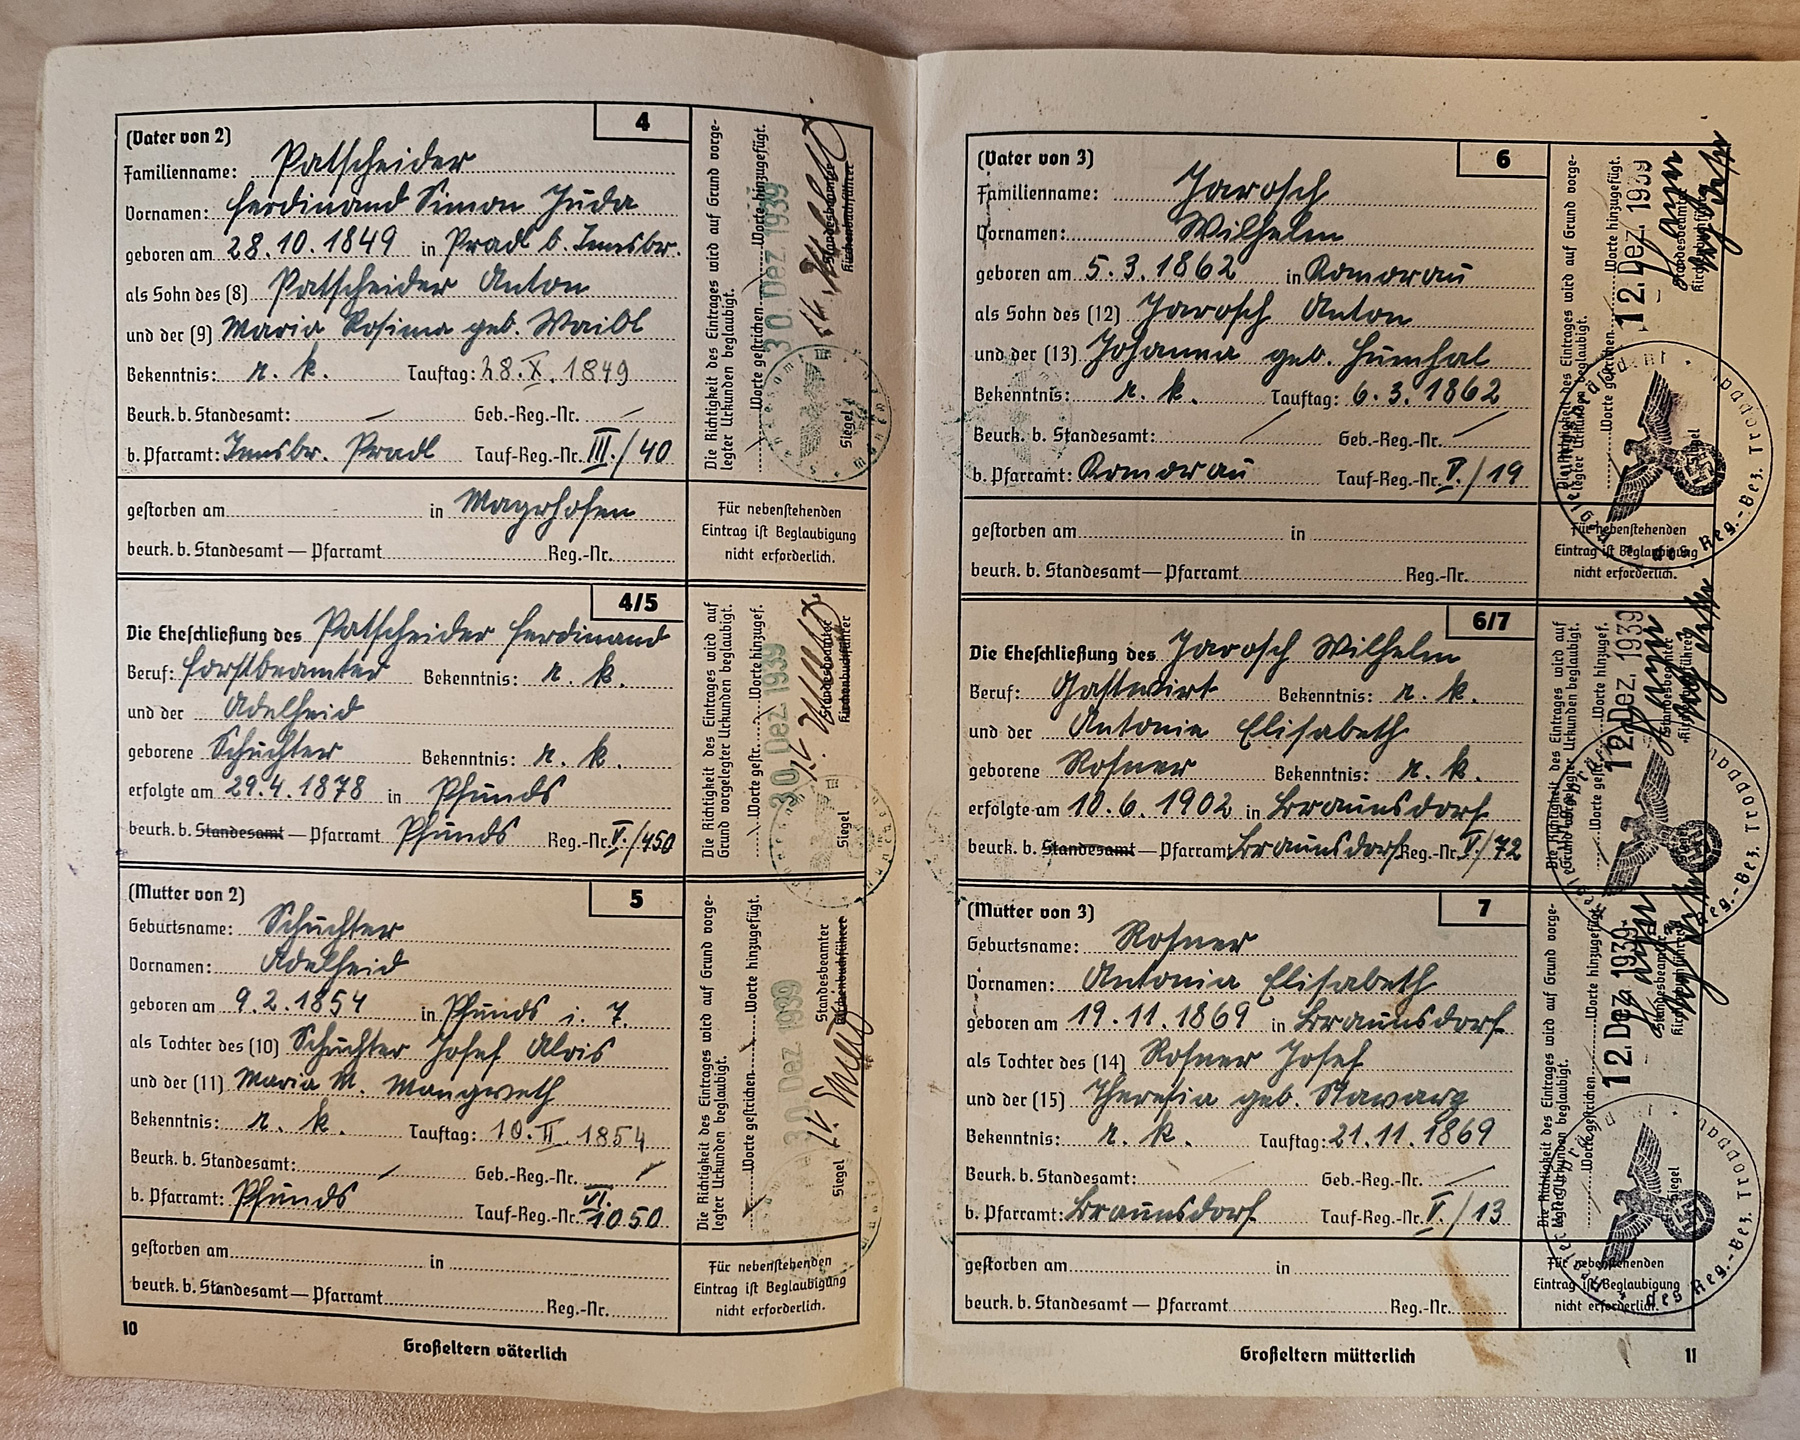 4
(Vater von 2)
Familienname: Patscheider
Vornamen: Ferdinand Simon Juda
geboren am 28.10.1849 in Pradl b. Innsbr.
als Sohn des (8) Patscheider Anton
und der (9) Maria Rosina geb. Waibl
Bekenntnis: r. k. Tauftag: 28.X.1849
Beurk. b. Standesamt: — Geb.-Reg.-Nr. —
b. Pfarramt: Innsbr. Pradl Tauf-Reg.-Nr. III./40
gestorben am in Mayrhofen
beurk. b. Standesamt — Pfarramt Reg.-Nr.
Die Richtigkeit des Eintrages wird auf Grund vorge-
legter Urkunden beglaubigt.
Worte gestrichen Worte hinzugefügt.
30 Dez 1939
Siegel
Standesbeamter
Kirchenbuchführer
Für nebenstehenden
Eintrag ist Beglaubigung
nicht erforderlich.
4/5
Die Eheschließung des Patscheider Ferdinand
Beruf: Forstbeamter Bekenntnis: r. k.
und der Adelheid
geborene Schuchter Bekenntnis: r. k.
erfolgte am 29.4.1878 in Pfunds
beurk. b. Standesamt — Pfarramt Pfunds Reg.-Nr. V./450
Die Richtigkeit des Eintrages wird auf
Grund vorgelegter Urkunden beglaubigt.
Worte gestr. Worte hinzugef.
30 Dez 1939
Siegel
Standesbeamter
Kirchenbuchführer
5
(Mutter von 2)
Geburtsname: Schuchter
Vornamen: Adelheid
geboren am 9.2.1854 in Pfunds i. T.
als Tochter des (10) Schuchter Josef Alois
und der (11) Maria M. Mangweth
Bekenntnis: r. k. Tauftag: 10.II.1854
Beurk. b. Standesamt: — Geb.-Reg.-Nr. —
b. Pfarramt: Pfunds Tauf-Reg.-Nr. VI. 1050
gestorben am in
beurk. b. Standesamt — Pfarramt Reg.-Nr.
Die Richtigkeit des Eintrages wird auf Grund vorge-
legter Urkunden beglaubigt.
Worte gestrichen Worte hinzugefügt.
30 Dez 1939
Siegel
Standesbeamter
Kirchenbuchführer
Für nebenstehenden
Eintrag ist Beglaubigung
nicht erforderlich.
10
Großeltern väterlich
6
(Vater von 3)
Familienname: Jarosch
Vornamen: Wilhelm
geboren am 5.3.1862 in Komorau
als Sohn des (12) Jarosch Anton
und der (13) Johanna geb. Humhal
Bekenntnis: r. k. Tauftag: 6.3.1862
Beurk. b. Standesamt: — Geb.-Reg.-Nr. —
b. Pfarramt: Komorau Tauf-Reg.-Nr. V./19
gestorben am in
beurk. b. Standesamt — Pfarramt Reg.-Nr.
Die Richtigkeit des Eintrages wird auf Grund vorge-
legter Urkunden beglaubigt.
Worte gestrichen Worte hinzugefügt.
12. Dez. 1939
Siegel
Standesbeamter
des Reg.-Bez. Troppau
Für nebenstehenden
Eintrag ist Beglaubigung
nicht erforderlich.
6/7
Die Eheschließung des Jarosch Wilhelm
Beruf: Gastwirt Bekenntnis: r. k.
und der Antonie Elisabeth
geborene Rosner Bekenntnis: r. k.
erfolgte am 10.6.1902 in Braunsdorf
beurk. b. Standesamt — Pfarramt Braunsdorf Reg.-Nr. V/72
Die Richtigkeit des Eintrages wird auf
Grund vorgelegter Urkunden beglaubigt.
Worte gestr. Worte hinzugef.
12. Dez. 1939
Siegel
Standesbeamter
Reg.-Bez. Troppau
7
(Mutter von 3)
Geburtsname: Rosner
Vornamen: Antonia Elisabeth
geboren am 19.11.1869 in Braunsdorf
als Tochter des (14) Rosner Josef
und der (15) Theresia geb. Stawarz
Bekenntnis: r. k. Tauftag: 21.11.1869
Beurk. b. Standesamt: — Geb.-Reg.-Nr. —
b. Pfarramt: Braunsdorf Tauf-Reg.-Nr. V./13
gestorben am in
beurk. b. Standesamt — Pfarramt Reg.-Nr.
Die Richtigkeit des Eintrages wird auf Grund vorge-
legter Urkunden beglaubigt.
Worte gestrichen Worte hinzugefügt.
12. Dez. 1939
Siegel
Standesbeamter
des Reg.-Bez. Troppau
Für nebenstehenden
Eintrag ist Beglaubigung
nicht erforderlich.
Großeltern mütterlich
11